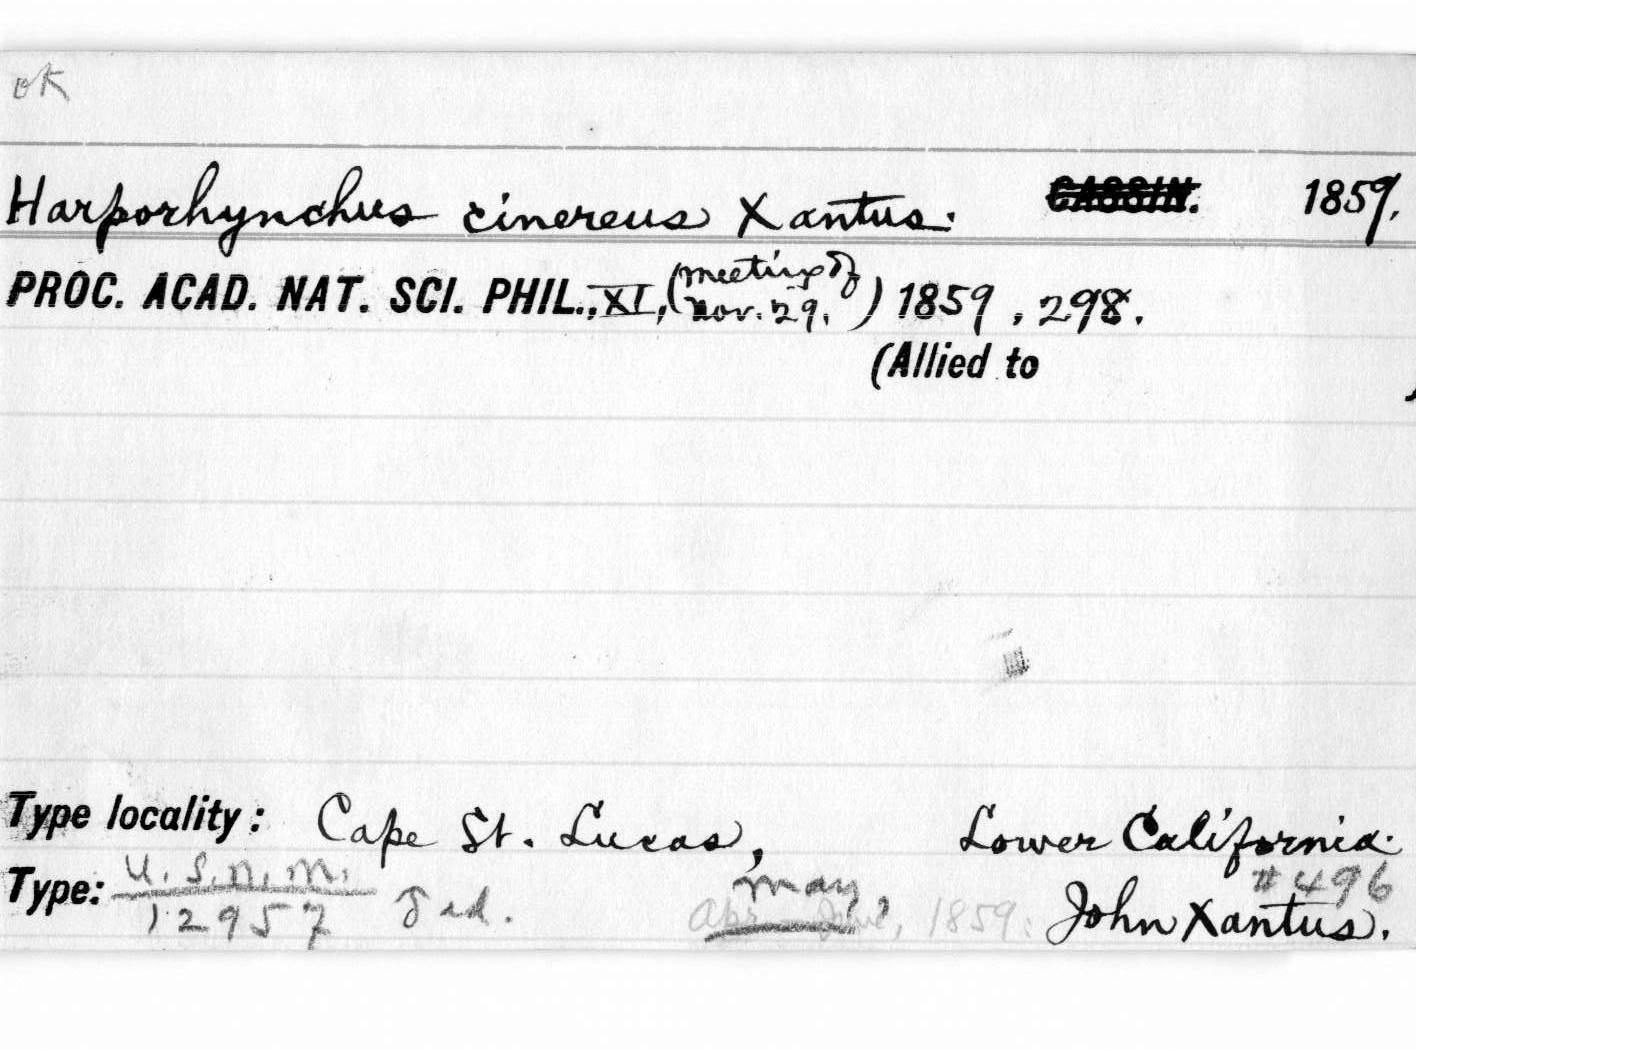 ok
Harporhynchus cinereus Xantus. CASSIN. 1859,
PROC. ACAD. NAT. SCI. PHIL., XI, (meeting of Nov. 29,) 1859, 298.
(Allied to
Type locality: Cape St. Lucas, Lower California.
#496
Type: U.S.N.M. 12957 ♂ ad. May, 1859. John Xantus.